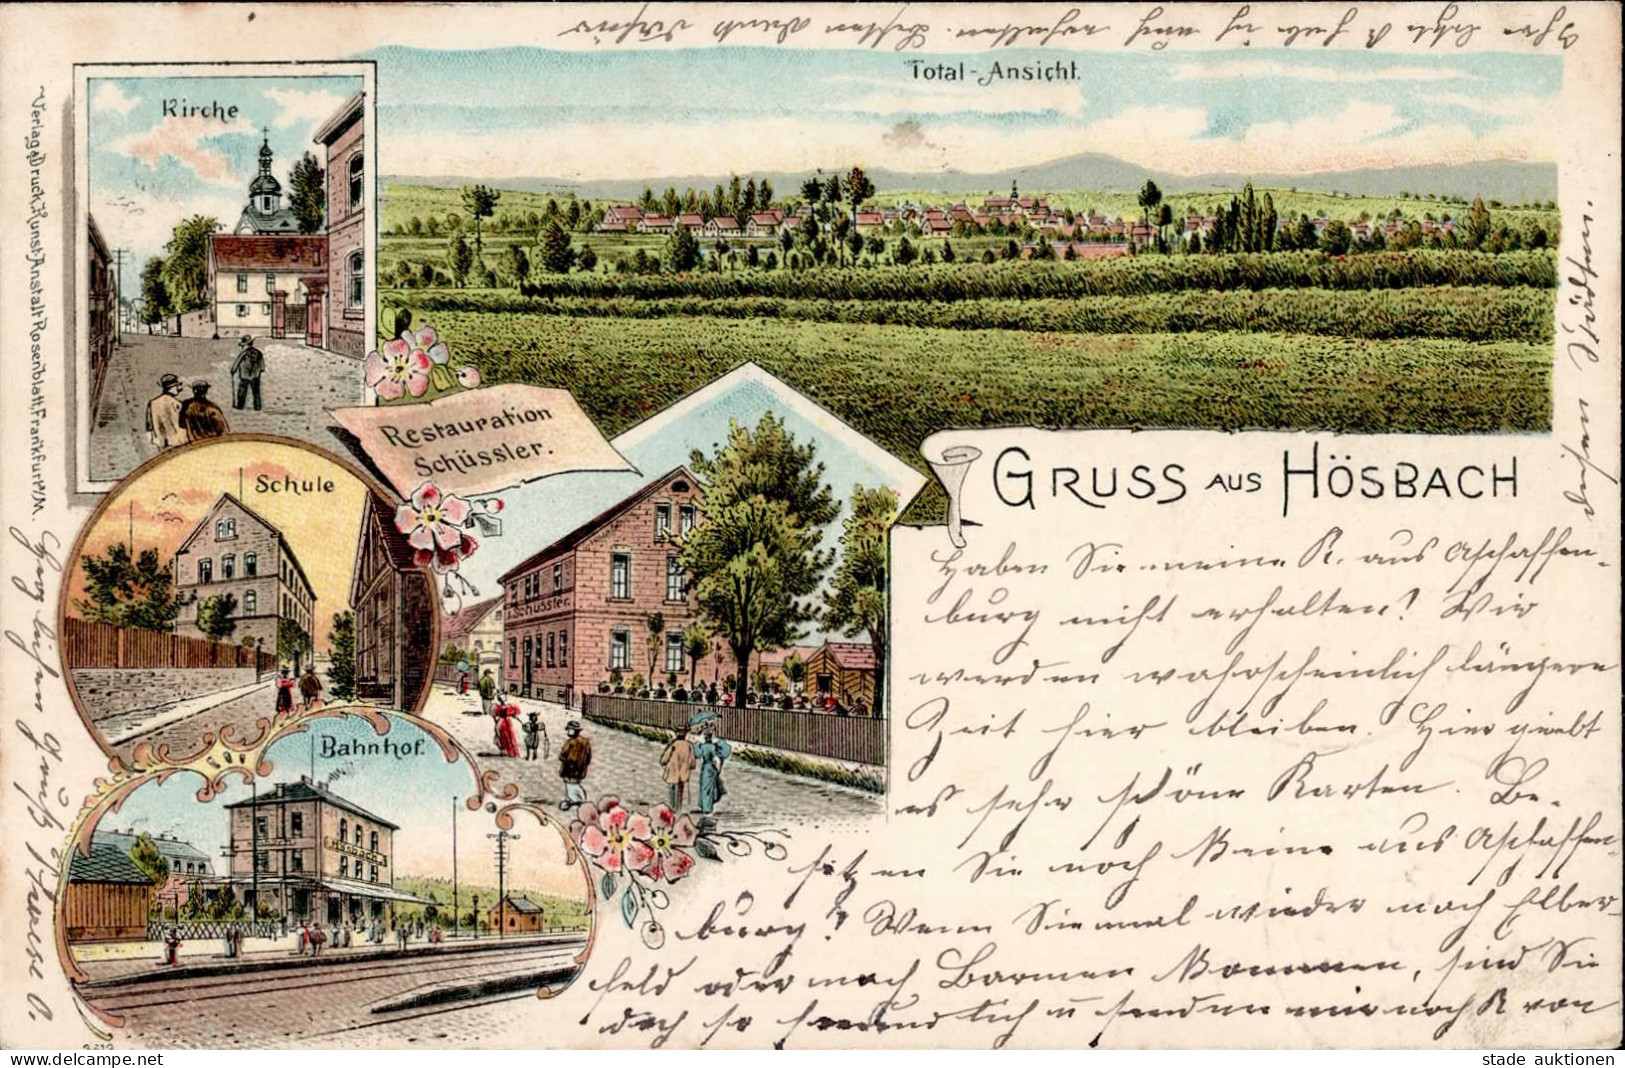 Ihre letzte K habe ich auch erhalten. Besten Dank dafür
Total-Ansicht.
Kirche
Verlag & Druck, Kunst-Anstalt Rosenblatt, Frankfurt a/M.
Restauration
Schüssler.
Schule
Schüssler.
Bahnhof.
Hösbach
GRUSS AUS HÖSBACH
Haben Sie meine K. aus Aschaffen-
burg nicht erhalten? Wir
werden wahrscheinlich längere
Zeit hier bleiben. Hier giebt
es sehr schöne Karten. Be-
sitzen Sie noch keine aus Aschaffen-
burg? Wenn Sie mal wieder nach Elber-
feld oder nach Barmen kommen, sind Sie
doch so freundlich u senden mir noch K von
Herzlichen Gruß
2612
stade auktionen